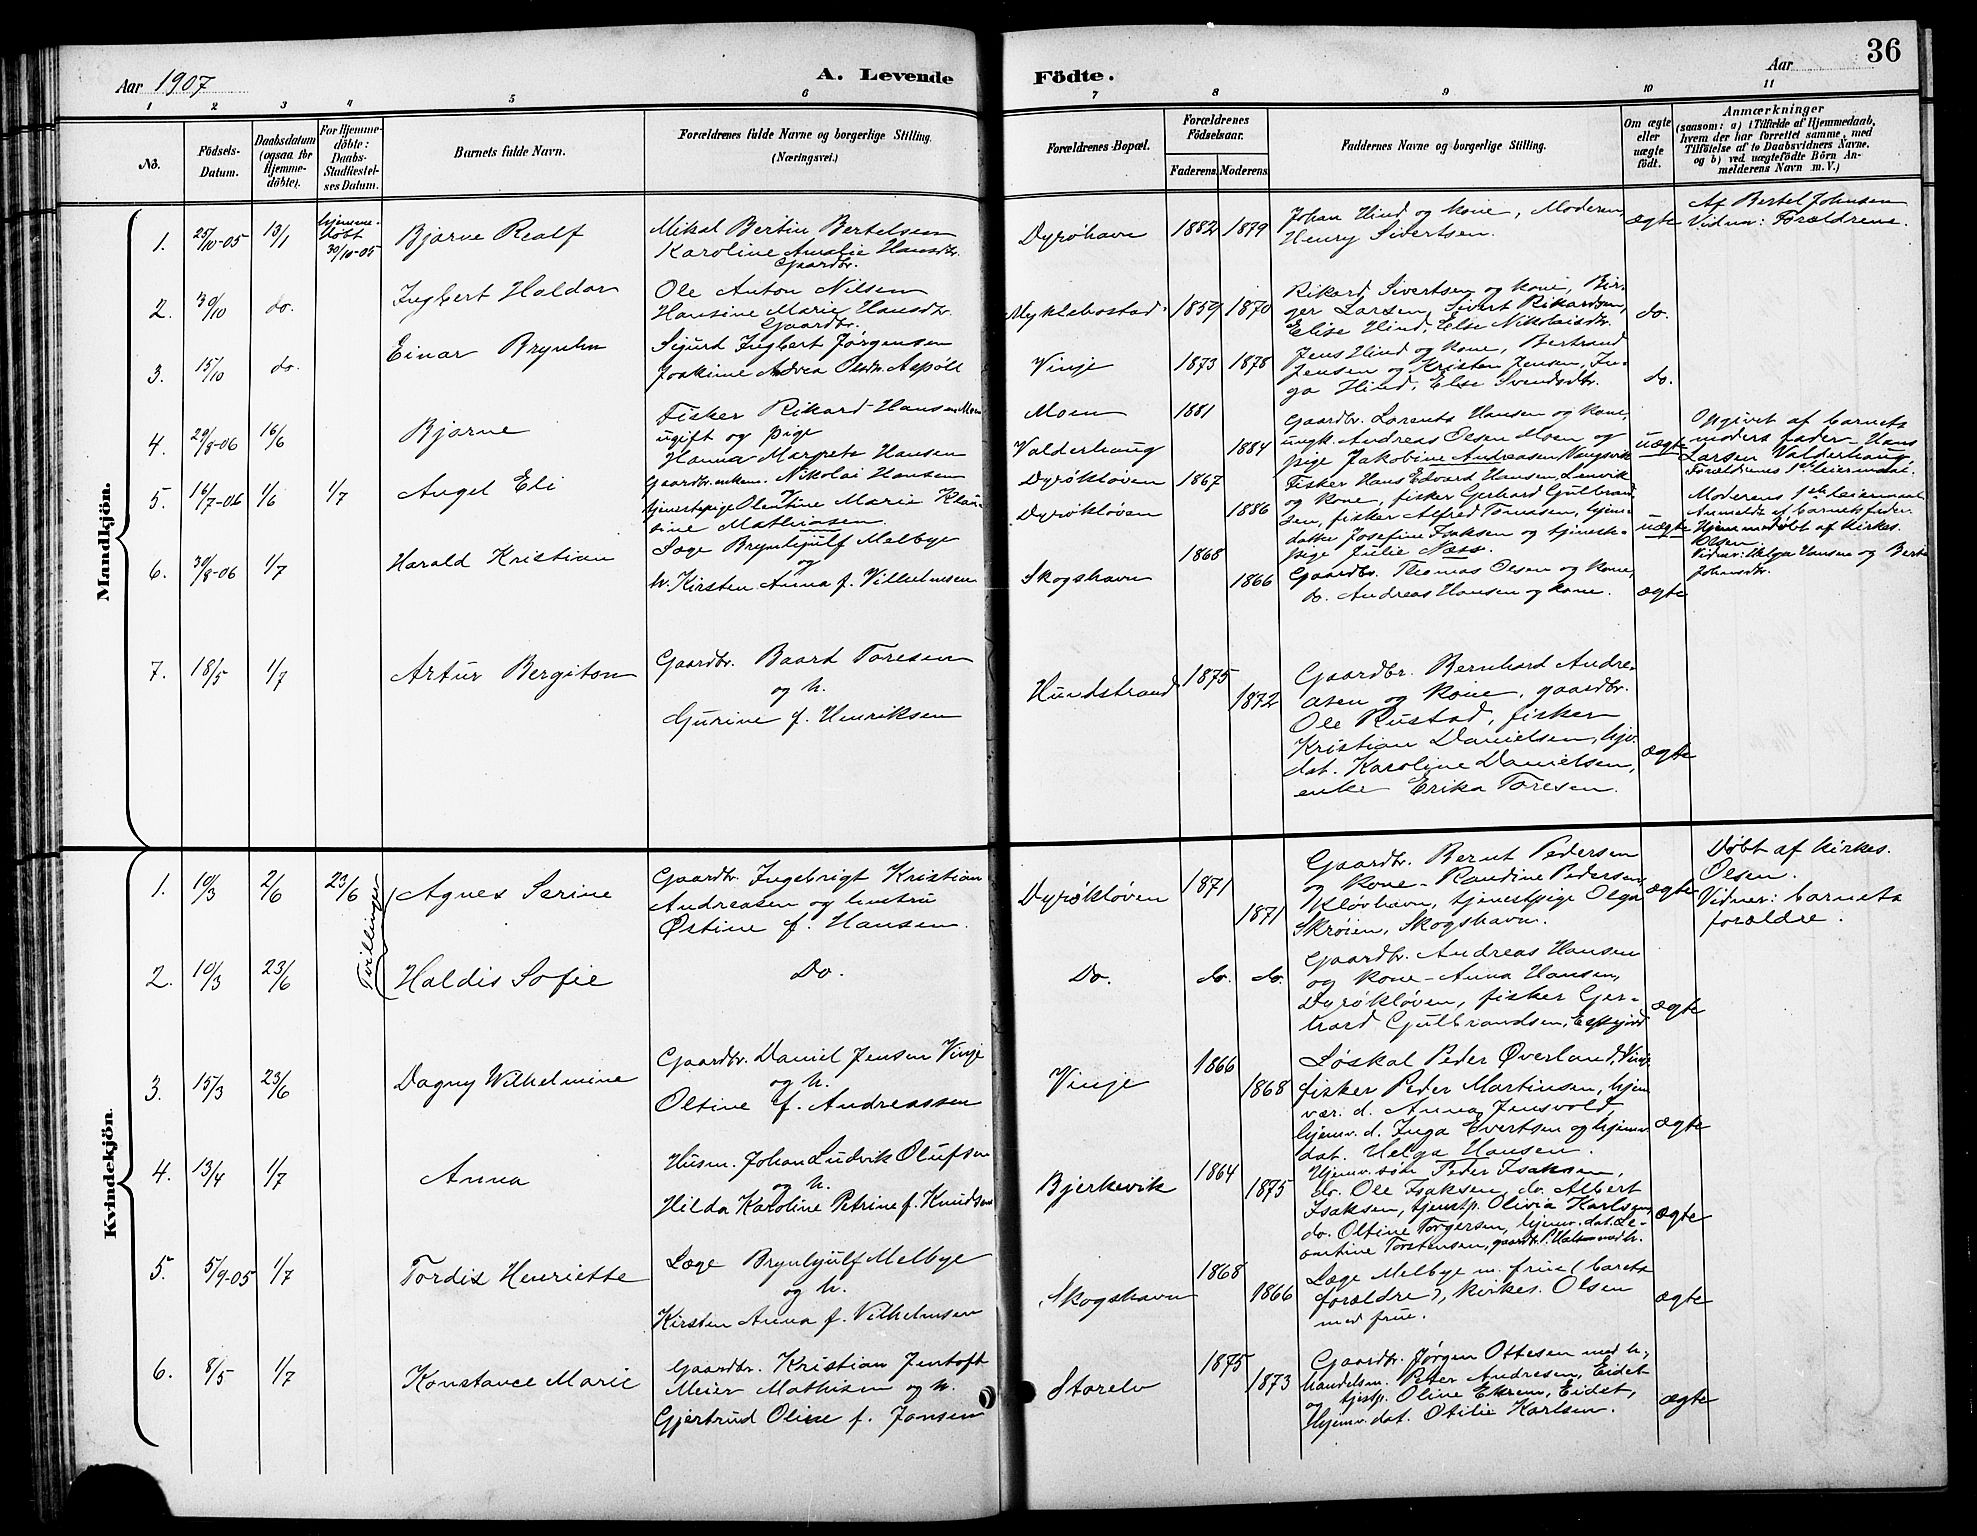 Aar 1907
A. Levende
Födte.
Aar
36
1 2 3 4 5 6 7 8 9 10 11
No.
Födsels-
Datum.
Daabsdatum
(ogsaa for
Hjemme-
döbte).
For Hjemme-
döbte:
Daabs-
Stadfæstel-
ses Datum.
Barnets fulde Navn.
Forældrenes fulde Navne og borgerlige Stilling.
(Næringsvei.)
Forældrenes Bopæl.
Forældrenes
Födselsaar.
Faderens. Moderens.
Faddernes Navne og borgerlige Stilling.
Om ægte
eller
uægte
födt.
Anmærkninger
(saasom: a) i Tilfælde af Hjemmedaab,
hvem der har forrettet samme, med
Tilföielse af to Daabsvidners Navne.
og b) ved uægtefödte Börn An-
melderens Navn m. V.)
Mandkjön.
1. 25/10-05 13/1 hjemme-
døbt
30/10-05
Bjarne Realf
Mikal Bertin Bertelsen
Karoline Amalie Hansdtr.
Dyrøhavn 1882 1879
Johan Hind og kone, Moderen,
Henry Sivertsen.
ægte
Af Bertel Johnsen
Vidner: Forældrene.
2. 30/10 do.
Ingbert Haldor
Gaardbr.
Ole Anton Nilsen
Hansine Marie Hansdtr.
Myklebostad 1859 1870
Rikard Sivertsen og kone, Bir-
ger Larsen, Sivert Rikardsen,
Elise Hind, Else Nikolaisdtr.
do.
3. 15/10 do.
Einar Brynhn
Gaardbr.
Sigurd Ingbert Jørgensen
Joakime Andrea Olsdtr. Aspöll
Vinje 1873 1878
Jens Hind og kone, Bertrand
Jensen og Kristen Jensen, In-
ga Hind, Else Svendsdtr.
do.
4. 29/8-06 16/6
Bjarne
Fisker Rikard Hansen Moen
ugift og pige
Hanna Margreta Hansen
Moen 1881
Valderhaug 1884
Gaardbr. Lorents Hansen og kone,
ungk. Andreas Olsen Moen og
pige Jakobine Andreasen
uægte
Opgivet af barnets
moders fader - Hans
Larsen Valderhaug
Forældrenes 1ste leiermaal.
5. 16/7-06 1/6 1/7
Angel Eli
Gaardbr. enkem. Nikolai Hansen
tjenestepige Olentine Marie Klau-
sine Mathiasen
Dyrøkløven 1867
Dyrøkløven 1886
Fisker Hans Edvard Hansen, Lenvik
og kone, fisker Gerhard Gulbrand-
sen, fisker Alfred Tomasen, hjem-
datter Josefine Isaksen og tjeneste-
pige Julie Næss.
uægte
Moderens 1ste leiermaal
Anmeldt af barnets fader.
Hjemmedøbt af Kirkes.
Olsen.
Vidner: Helga Hansen og Berte
Johansdtr.
6. 30/8-06 1/7
Harald Kristian
Læge Brynhjulf Melbye
og
h. Kirsten Anna f. Vilhelmsen
Skogshavn 1868 1866
Gaardbr. Thomas Olsen og kone,
do. Andreas Hansen og kone.
ægte
7. 18/5 1/7
Artur Bergiton
Gaardbr. Baard Toresen
og h.
Gurine f. Henriksen
Hundstrand 1875 1872
Gaardbr. Bernhard Andre-
asen og kone, gaardbr.
Ole Rustad, fisker
Kristian Danielsen, hjv.
dat. Karoline Danielsen,
enke Erika Toresen.
ægte
Kvindekjön.
1. 10/3 2/6 23/6
Tvillinger
Agnes Serine
Gaardbr. Ingebrigt Kristian
Andreasen og hustru
Østine f. Hansen.
Dyrøkløven 1871 1871
Gaardbr. Bernt Pedersen
og kone - Randine Pedersen,
Kløvhavn, tjenestpige Olga
Skrøien, Skogshavn.
ægte
Døbt af Kirkes.
Olsen.
Vidner: barnets
forældre.
2. 10/3 23/6
Haldis Sofie
Do.
Do. do. do.
Gaardbr. Andreas Hansen
og kone - Anna Hansen,
Dyrøkløven, fisker Ger-
hard Gulbrandsen, Espejord
ægte
3. 15/3 23/6
Dagny Wilhelmine
Gaardbr. Daniel Jensen Vinje
og h.
Oltine f. Andreassen
Vinje 1866 1868
Løskal Peder Øverland, Vinje
fisker Peder Martinsen, hjem
vær. d. Anna Jensvold,
hjemv. d. Inga Evertsen og hjemv
dat. Helga Hansen.
ægte
4. 13/4 1/7
Anna
Husm. Johan Ludvik Olufsen
og h.
Hilda Karoline Petrine f. Knudsen
Bjerkevik 1864 1875
Hjemv. søn Peder Isaksen,
do. Ole Isaksen, do. Albert
Isaksen, tjenstp. Olivia Karlsen,
do. Oltine Torgersen, hjemv. dat. Le-
ontine Torstensen, gaardbr.
ægte
5. 5/9-05 1/7
Tordis Henriette
Læge Brynhjulf Melbye
og h.
Kirsten Anna f. Vilhelmsen
Skogshavn 1868 1866
Læge Melbye m. frue (barets
forældre), kirkes. Olsen
med frue.
ægte
6. 8/5 1/7
Konstance Marie
Gaardbr. Kristian Jentoft
Meier Mathisen og h.
Gjertrud Oline f. Jonsen
Storelv 1875 1873
Gaardbr. Jørgen Ottesen med h.,
handelsm. Peter Andresen, Eidet
og tjstp. Oline Ekrem, Eidet,
hjemv. dat. Otilie Karlsen.
ægte